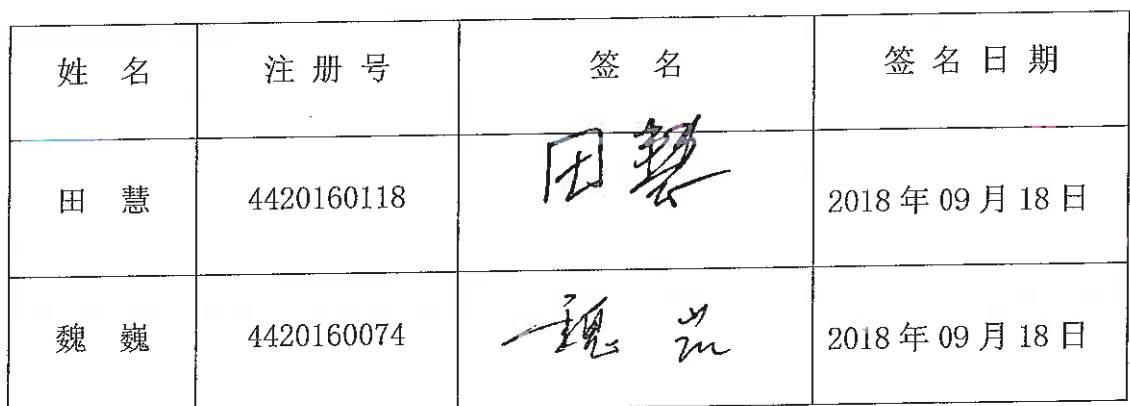 姓 名 注 册 号 签 名 签 名 日 期
田 慧 4420160118 田慧 2018 年 09 月 18 日
魏 巍 4420160074 魏 2018 年 09 月 18 日